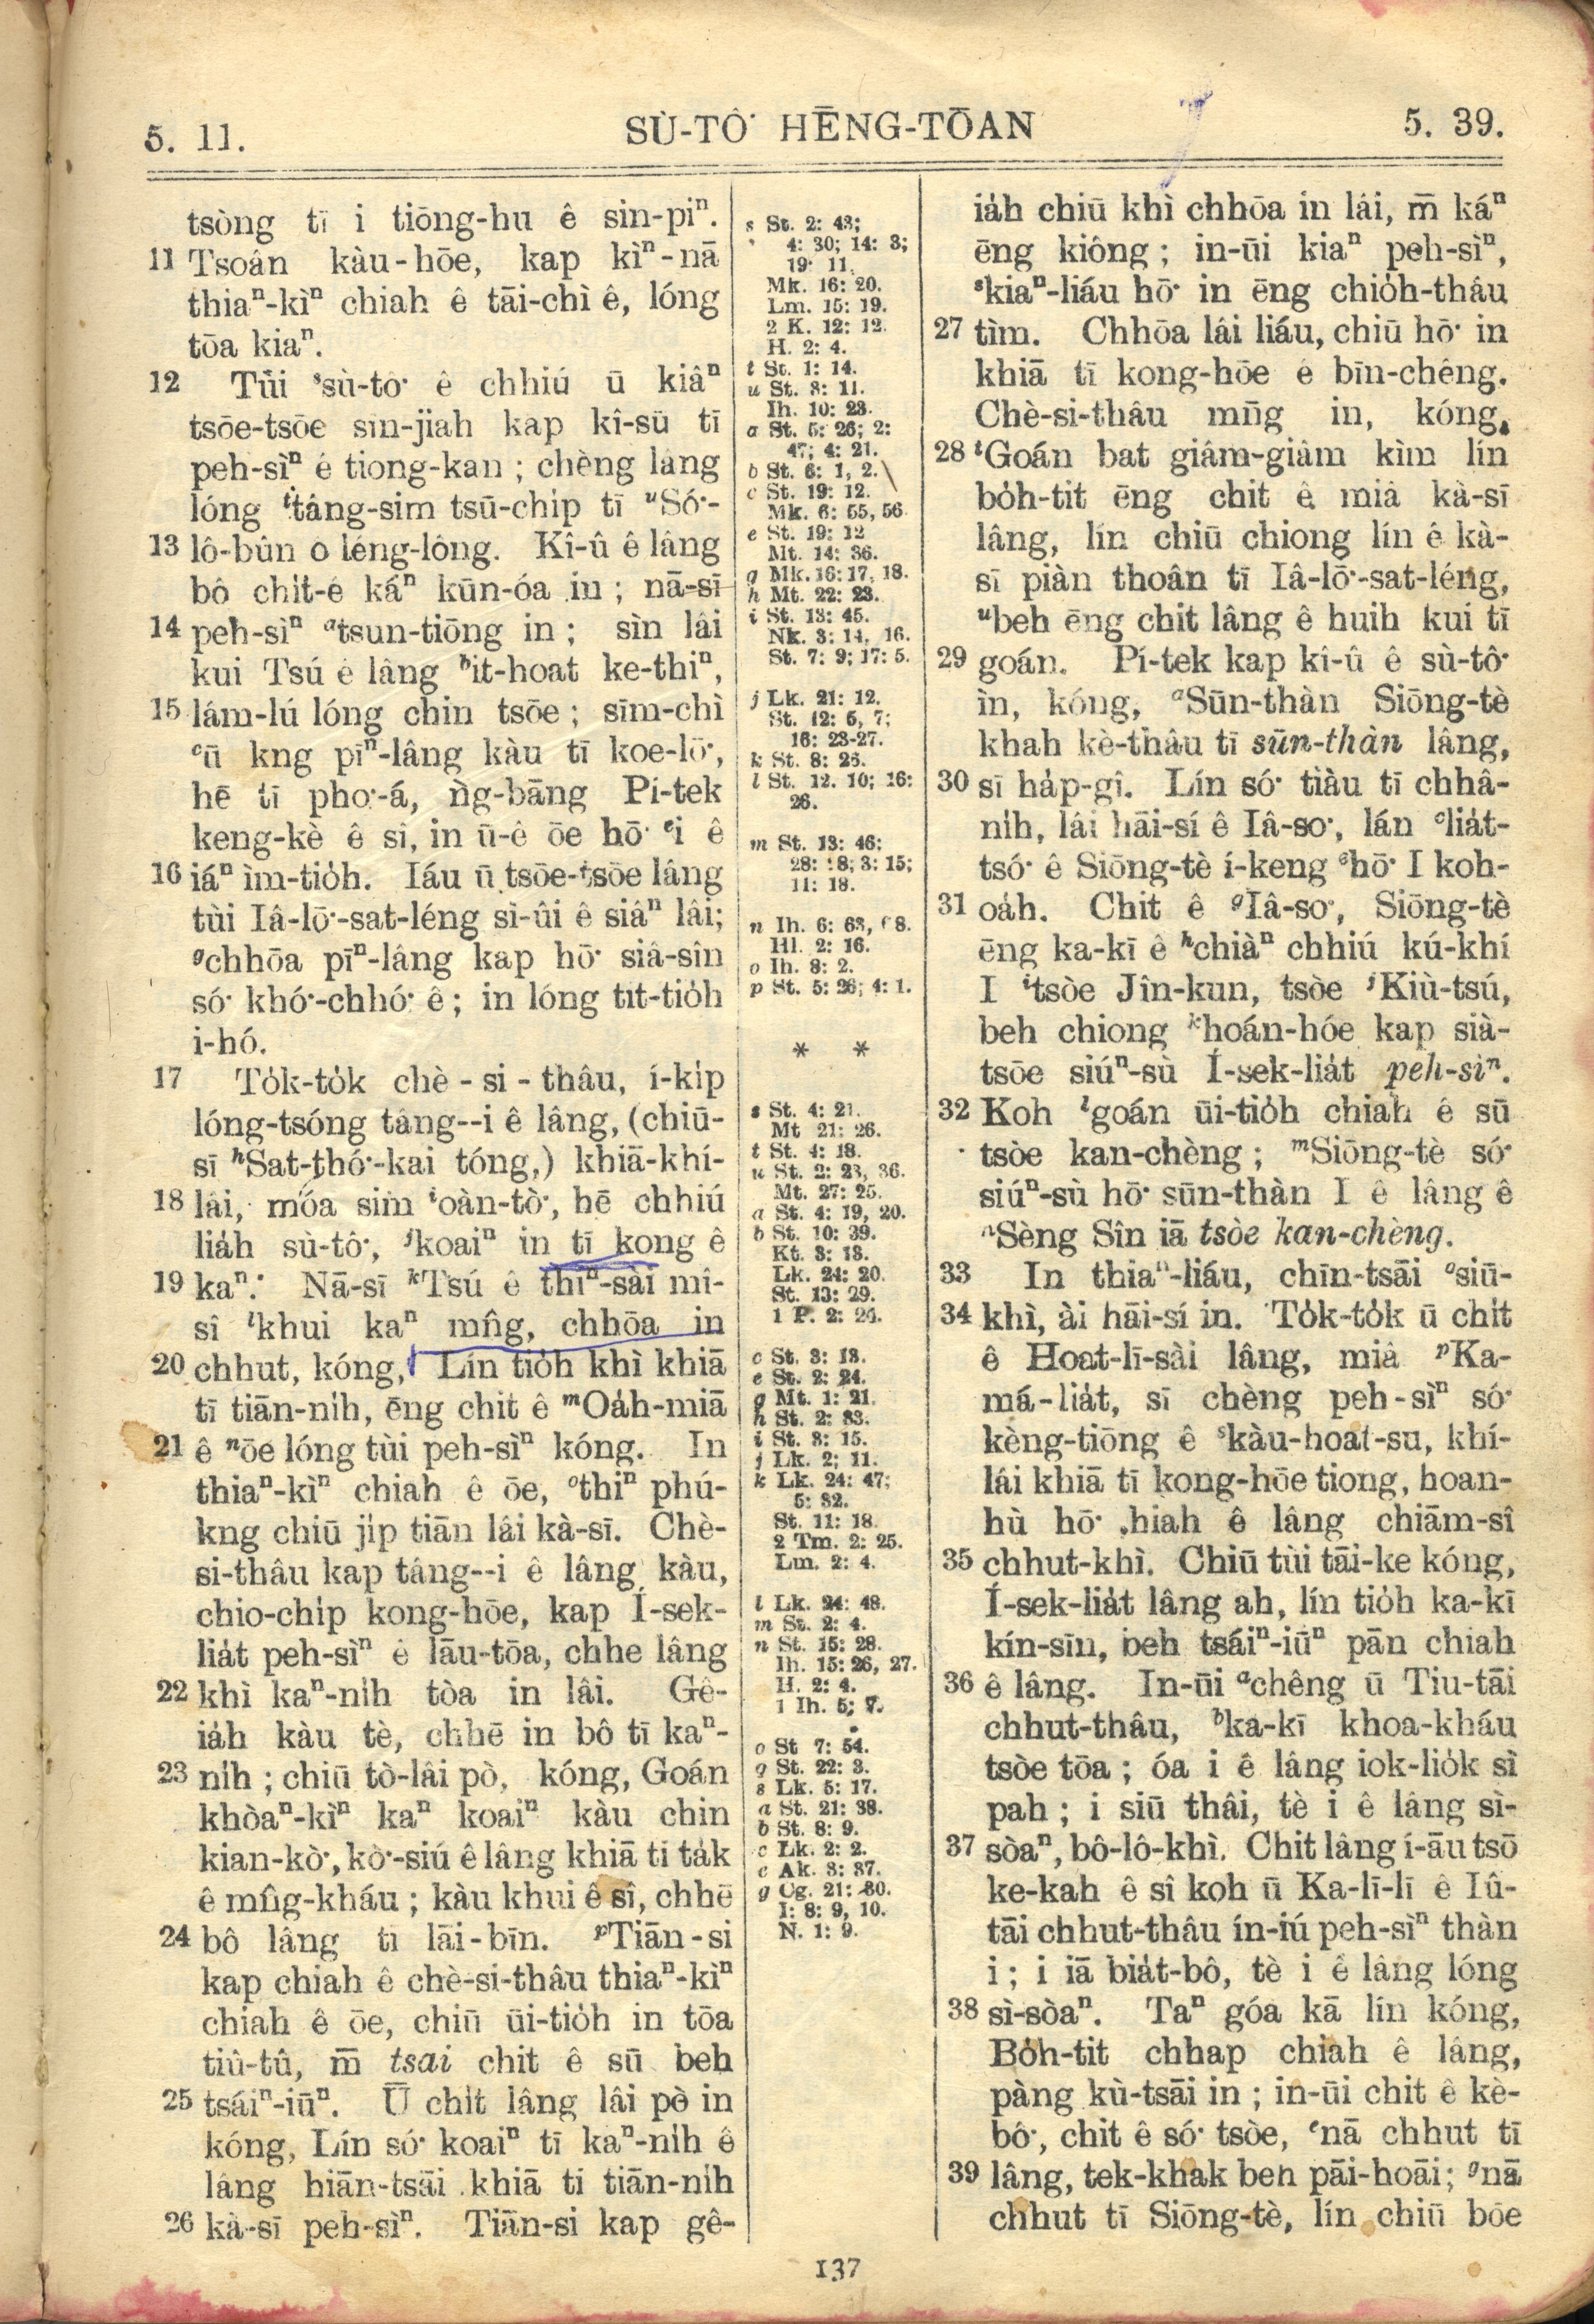 5. 11.
SÙ-TÔ͘ HĒNG-TŌAN
5. 39.
tsòng tī i tiōng-hu ê sin-piⁿ.
11 Tsoân kàu-hōe, kap kìⁿ-nā
thiaⁿ-kìⁿ chiah ê tāi-chì ê, lóng
tōa kiaⁿ.
12 Tùi ˢsù-tô͘ ê chhiú ū kiâⁿ
tsōe-tsōe sîn-jiah kap kî-sū tī
peh-sìⁿ ê tiong-kan ; chèng lâng
lóng ᵗtâng-sim tsū-chi̍p tī ᵘSó͘-
13 lô-bûn ê léng-lông. Kî-û ê lâng
bô chi̍t-ê káⁿ kūn-óa in ; nā-sī
14 peh-sìⁿ ᵃtsun-tiōng in ; sìn lâi
kui Tsú ê lâng ᵇit-hoat ke-thiⁿ,
15 lâm-lú lóng chin tsōe ; sīm-chì
ᶜū kng pīⁿ-lâng kàu tī koe-lō͘,
hē tī pho͘-á, ǹg-bāng Pí-tek
keng-kè ê sî, in ū-ê ōe hō͘ ᵉi ê
16 iáⁿ ìm-tio̍h. Iáu ū tsōe-tsōe lâng
tùi Iâ-lō͘-sat-léng sì-ûi ê siâⁿ lâi;
ᵍchhōa pīⁿ-lâng kap hō͘ siâ-sîn
só͘ khó͘-chhó͘ ê ; in lóng tit-tio̍h
i-hó.
17 To̍k-to̍k chè-si-thâu, í-ki̍p
lóng-tsóng tâng--i ê lâng, (chiū-
sī ʰSat-thó͘-kai tóng,) khiā-khí-
18 lâi, móa sim ⁱoàn-tò͘, hē chhiú
lia̍h sù-tô͘, ʲkoaiⁿ in tī kong ê
19 kaⁿ. Nā-sī ᵏTsú ê thiⁿ-sài mî-
sî ˡkhui kaⁿ mn̂g, chhōa in
20 chhut, kóng, Lín tio̍h khì khiā
tī tiān-ni̍h, ēng chit ê ᵐOa̍h-miā
21 ê ⁿōe lóng tùi peh-sìⁿ kóng. In
thiaⁿ-kìⁿ chiah ê ōe, ᵒthiⁿ phú-
kng chiū ji̍p tiān lâi kà-sī. Chè-
si-thâu kap tâng--i ê lâng kàu,
chio-chi̍p kong-hōe, kap Í-sek-
lia̍t peh-sìⁿ ê lāu-tōa, chhe lâng
22 khì kaⁿ-ni̍h tòa in lâi. Gê-
ia̍h kàu tè, chhē in bô tī kaⁿ-
23 ni̍h ; chiū tò-lâi pò, kóng, Goán
khòaⁿ-kìⁿ kaⁿ koaiⁿ kàu chin
kian-kò͘, kò͘-siú ê lâng khiā tī ta̍k
ê mn̂g-kháu ; kàu khui ê sî, chhē
24 bô lâng tī lāi-bīn. ᵖTiān-si
kap chiah ê chè-si-thâu thiaⁿ-kìⁿ
chiah ê ōe, chiū ūi-tio̍h in tōa
tiû-tû, m̄ tsai chit ê sū beh
25 tsáiⁿ-iūⁿ. Ū chi̍t lâng lâi pò in
kóng, Lín só͘ koaiⁿ tī kaⁿ-ni̍h ê
lâng hiān-tsāi khiā tī tiān-ni̍h
26 kà-sī peh-sìⁿ. Tiān-si kap gê-
s St. 2: 43;
4: 30; 14: 3;
19: 11.
Mk. 16: 20.
Lm. 15: 19.
2 K. 12: 12.
H. 2: 4.
t St. 1: 14.
u St. 3: 11.
Ih. 10: 23.
a St. 5: 26; 2:
47; 4: 21.
b St. 6: 1, 2.
c St. 19: 12.
Mk. 6: 55, 56.
e St. 19: 12
Mt. 14: 36.
g Mk. 16: 17, 18.
h Mt. 22: 23.
i St. 13: 45.
Nk. 3: 14, 16.
St. 7: 9; 17: 5.
j Lk. 21: 12.
St. 12: 5, 7;
16: 23-27.
k St. 8: 26.
l St. 12. 10; 16:
26.
m St. 13: 46;
28: 28; 3: 15;
11: 18.
n Ih. 6: 63, 68.
Hl. 2: 16.
o Ih. 8: 2.
p St. 5: 26; 4: 1.
* *
s St. 4: 21.
Mt 21: 26.
t St. 4: 18.
u St. 2: 23, 36.
Mt. 27: 25.
a St. 4: 19, 20.
b St. 10: 39.
Kt. 3: 13.
Lk. 24: 20.
St. 13: 29.
1 P. 2: 24.
c St. 3: 13.
e St. 2: 24.
g Mt. 1: 21.
h St. 2: 33.
i St. 3: 15.
j Lk. 2; 11.
k Lk. 24: 47;
5: 32.
St. 11: 18.
2 Tm. 2: 25.
Lm. 2: 4.
l Lk. 24: 48.
m St. 2: 4.
n St. 15: 28.
Ih. 15: 26, 27.
H. 2: 4.
1 Ih. 5; 7.
o St 7: 54.
q St. 22: 3.
s Lk. 5: 17.
a St. 21: 38.
b St. 8: 9.
c Lk. 2: 2.
e Ak. 3: 37.
g Cg. 21: 30.
I: 8: 9, 10.
N. 1: 9.
ia̍h chiū khì chhōa in lâi, m̄ káⁿ
ēng kióng ; in-ūi kiaⁿ peh-sìⁿ,
ˢkiaⁿ-liáu hō͘ in ēng chio̍h-thâu
27 tìm. Chhōa lâi liáu, chiū hō͘ in
khiā tī kong-hōe ê bīn-chêng.
Chè-si-thâu mn̄g in, kóng,
28 ᵗGoán bat giâm-giâm kìm lín
bo̍h-tit ēng chit ê miâ kà-sī
lâng, lín chiū chiong lín ê kà-
sī piàn thoân tī Iâ-lō͘-sat-léng,
ᵘbeh ēng chit lâng ê huih kui tī
29 goán. Pí-tek kap kî-û ê sù-tô͘
ìn, kóng, ᵃSūn-thàn Siōng-tè
khah kè-thâu tī sūn-thàn lâng,
30 sī ha̍p-gî. Lín só͘ tiàu tī chhâ-
ni̍h, lâi hāi-sí ê Iâ-so͘, lán ᶜlia̍t-
tsó͘ ê Siōng-tè í-keng ᵉhō͘ I koh-
31 oa̍h. Chit ê ᵍIâ-so͘, Siōng-tè
ēng ka-kī ê ʰchiàⁿ chhiú kú-khí
I ⁱtsòe Jîn-kun, tsòe ʲKiù-tsú,
beh chiong ᵏhoán-hóe kap sià-
tsōe siúⁿ-sù Í-sek-lia̍t peh-sìⁿ.
32 Koh ˡgoán ūi-tio̍h chiah ê sū
tsòe kan-chèng ; ᵐSiōng-tè só͘
siúⁿ-sù hō͘ sūn-thàn I ê lâng ê
ⁿSèng Sîn iā tsòe kan-chèng.
33 In thiaⁿ-liáu, chīn-tsāi ᵒsiū-
34 khì, ài hāi-sí in. To̍k-to̍k ū chi̍t
ê Hoat-lī-sài lâng, miâ ᵖKa-
má-lia̍t, sī chèng peh-sìⁿ só͘
kèng-tiōng ê ˢkàu-hoat-su, khí-
lâi khiā tī kong-hōe tiong, hoan-
hù hō͘ hiah ê lâng chiām-sî
35 chhut-khì. Chiū tùi tāi-ke kóng,
Í-sek-lia̍t lâng ah, lín tio̍h ka-kī
kín-sīn, beh tsáiⁿ-iūⁿ pān chiah
36 ê lâng. In-ūi ᵃchêng ū Tiu-tāi
chhut-thâu, ᵇka-kī khoa-kháu
tsòe tōa ; óa i ê lâng iok-lio̍k sì
pah ; i siū thâi, tè i ê lâng sì-
37 sòaⁿ, bô-lô-khì. Chit lâng í-āu tsō
ke-kah ê sî koh ū Ka-lī-lī ê Iû-
tāi chhut-thâu ín-iú peh-sìⁿ thàn
i ; i iā bia̍t-bô, tè i ê lâng lóng
38 sì-sòaⁿ. Taⁿ góa kā lín kóng,
Bo̍h-tit chhap chiah ê lâng,
pàng kù-tsāi in ; in-ūi chit ê kè-
bô͘, chit ê só͘ tsòe, ᵉnā chhut tī
39 lâng, tek-khak beh pāi-hoāi; ᵍnā
chhut tī Siōng-tè, lín chiū bōe
137